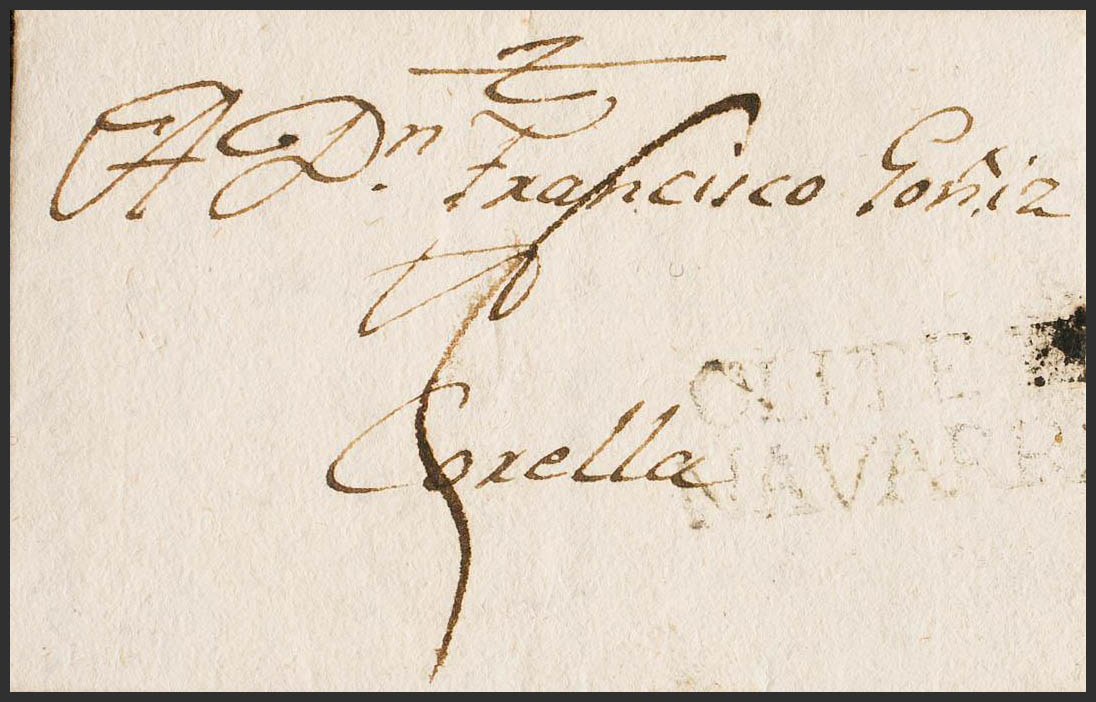 A Dn. Francisco Goñiz
Corella
OLITE
NAVARRA